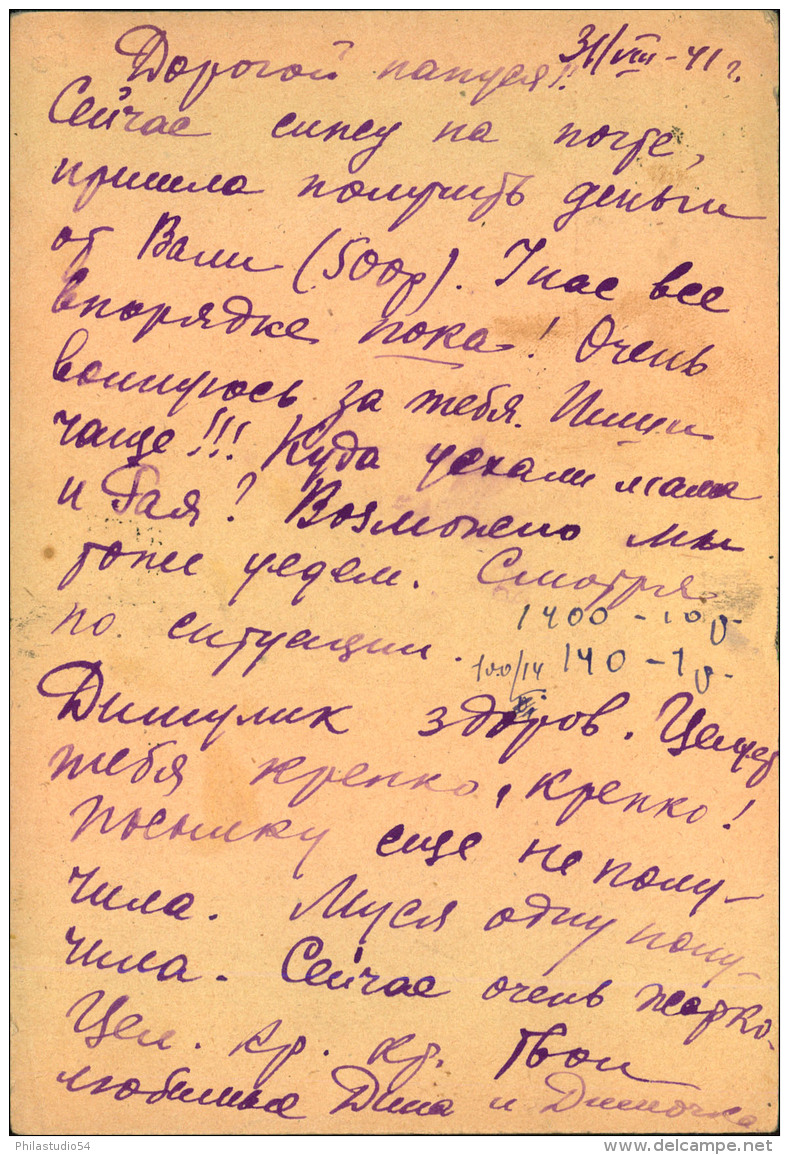 31/VIII-41 г.
Дорогой папуся!!
Сейчас сижу на почте,
пришла получить деньги
от Вали (500р). У нас все
впорядке пока! Очень
волнуюсь за тебя. Пиши
чаще!!! Куда уехали мама
и Гая? Возможно мы
тоже уедем. Смотря
по ситуации.
1400 - 10
100/14 140 - 1
Димулик здоров. Целует
тебя крепко, крепко!
Посылку еще не полу-
чила. Муся одну полу-
чила. Сейчас очень жарко.
Цел. кр. кр. Твои
любимые Дина и Димочка
Philastudio54
delcampe.net